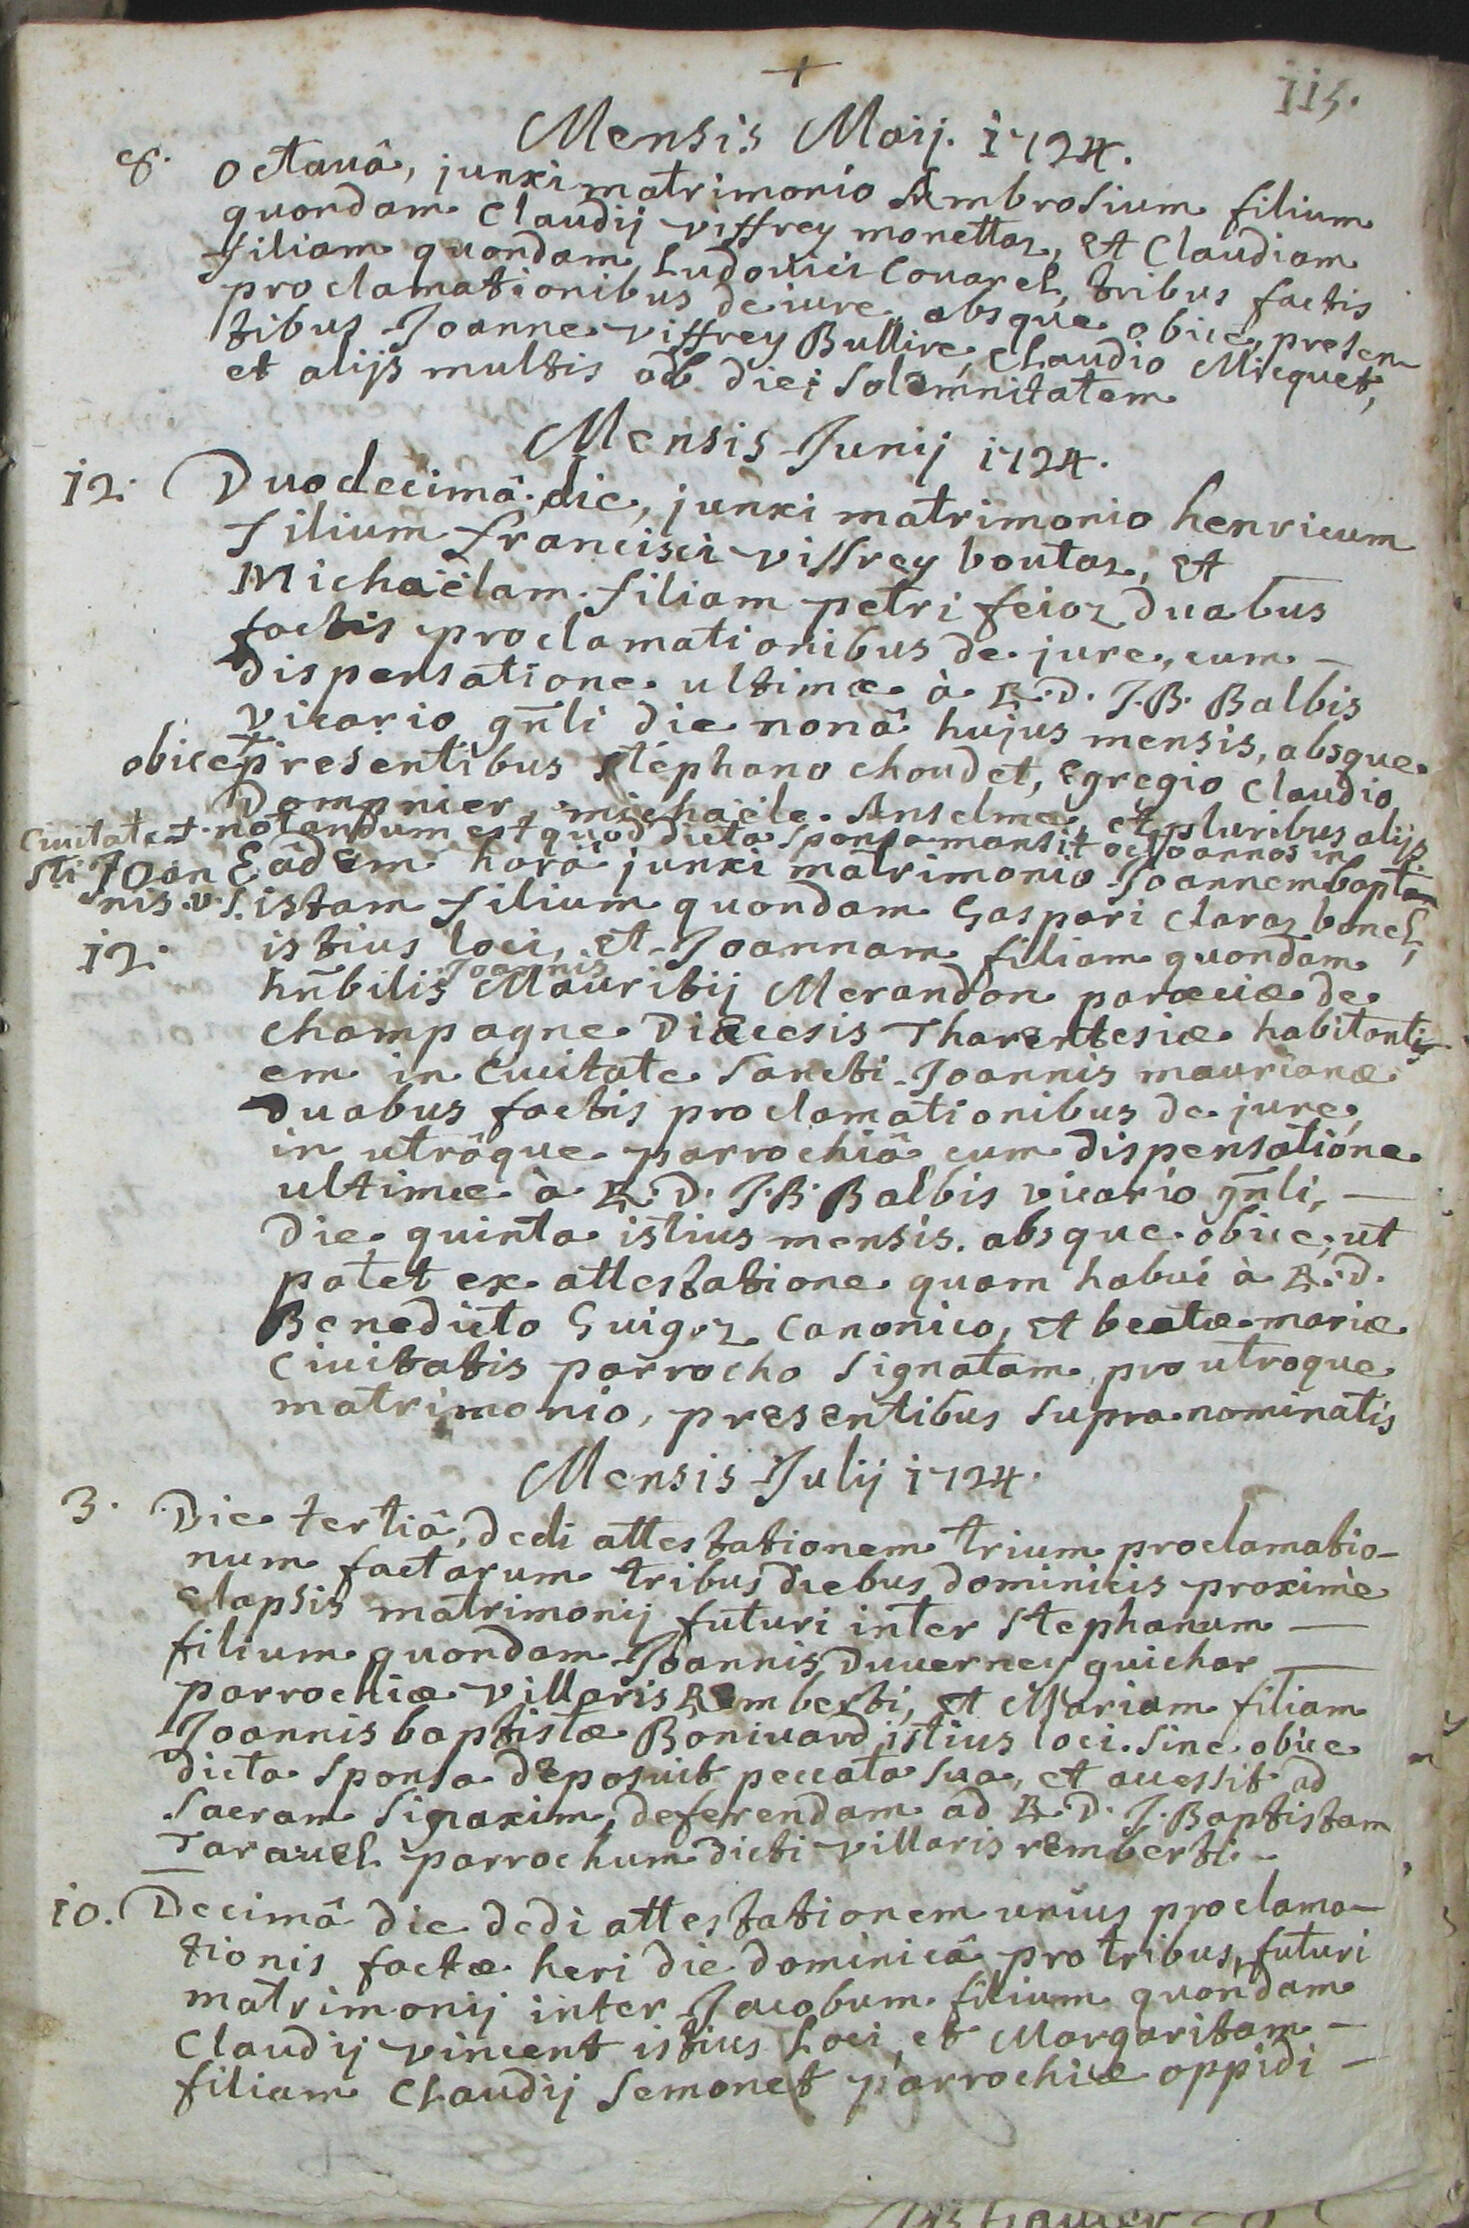 +
115.
Mensis Maij. 1724.
8. octauâ, junxi matrimonio Ambrosium filium
quondam Claudij viffrey monettaz, et Claudiam
filiam quondam Ludovici Couarel, tribus factis
proclamationibus de iure, absque obice, presen-
tibus Joanne viffrey Bullire, Claudio Micquet,
et alijs multis ob diei solemnitatem
Mensis Junij 1724.
12. Duodecimâ die, junxi matrimonio henricum
filium francisci viffrey boutaz, et
Michaëlam filiam petri feioz duabus
factis proclamationibus de jure, cum —
dispensatione ultimæ à R.D. J.B. Balbis
vicario gñli die nonâ hujus mensis, absque
obice presentibus stephano choudet, Egregio Claudio
Dompnier, michaële Anselme, et pluribus alijs.
notandum est quod dicta sponsa mansit octo annos in
Ciuitate sti Joannis.
Eâdem horâ junxi matrimonio Joannem bapt-
istam filium quondam Gaspari claraz bonel,
12. istius loci, et Joannam filiam quondam
hñbilis Joannis Mauritij Merandon parœciæ de
champagne Diæcesis Tharentesiæ habitanti-
em in Ciuitate sancti Joannis maurianæ
duabus factis proclamationibus de jure,
in utrâque parrochiâ cum dispensatione
ultimæ à R.D. J.B. Balbis vicario gñli, —
die quinta istius mensis. absque obice, ut
patet ex attestatione quam habui à R.D.
Benedicto Guigoz canonico, et beatæ mariæ
Ciuitatis parrocho signatam, pro utroque
matrimonio, presentibus supra nominatis
Mensis Julij 1724.
3. Die tertiâ, dedi attestationem trium proclamatio-
num factarum tribus diebus dominicis proximè
elapsis matrimonij futuri inter stephanum —
filium quondam Joannis Duuerney guichar —
parrochiæ villaris Remberti, et Mariam filiam
Joannis baptistæ Boniuard istius loci. sine obice
dicta sponsa deposuit peccata sua, et accessit ad
sacram sinaxim, deferendam ad R.D. J. Baptistam
Tarauel parrochum dicti villaris remberti. —
10. Decimâ die dedi attestationem unius proclama-
tionis factæ heri die dominicâ pro tribus, futuri
matrimonij inter Jacobum filium quondam
Claudij vincent istius loci, et Margaritam —
filiam Claudij Semonet parrochiæ oppidi —